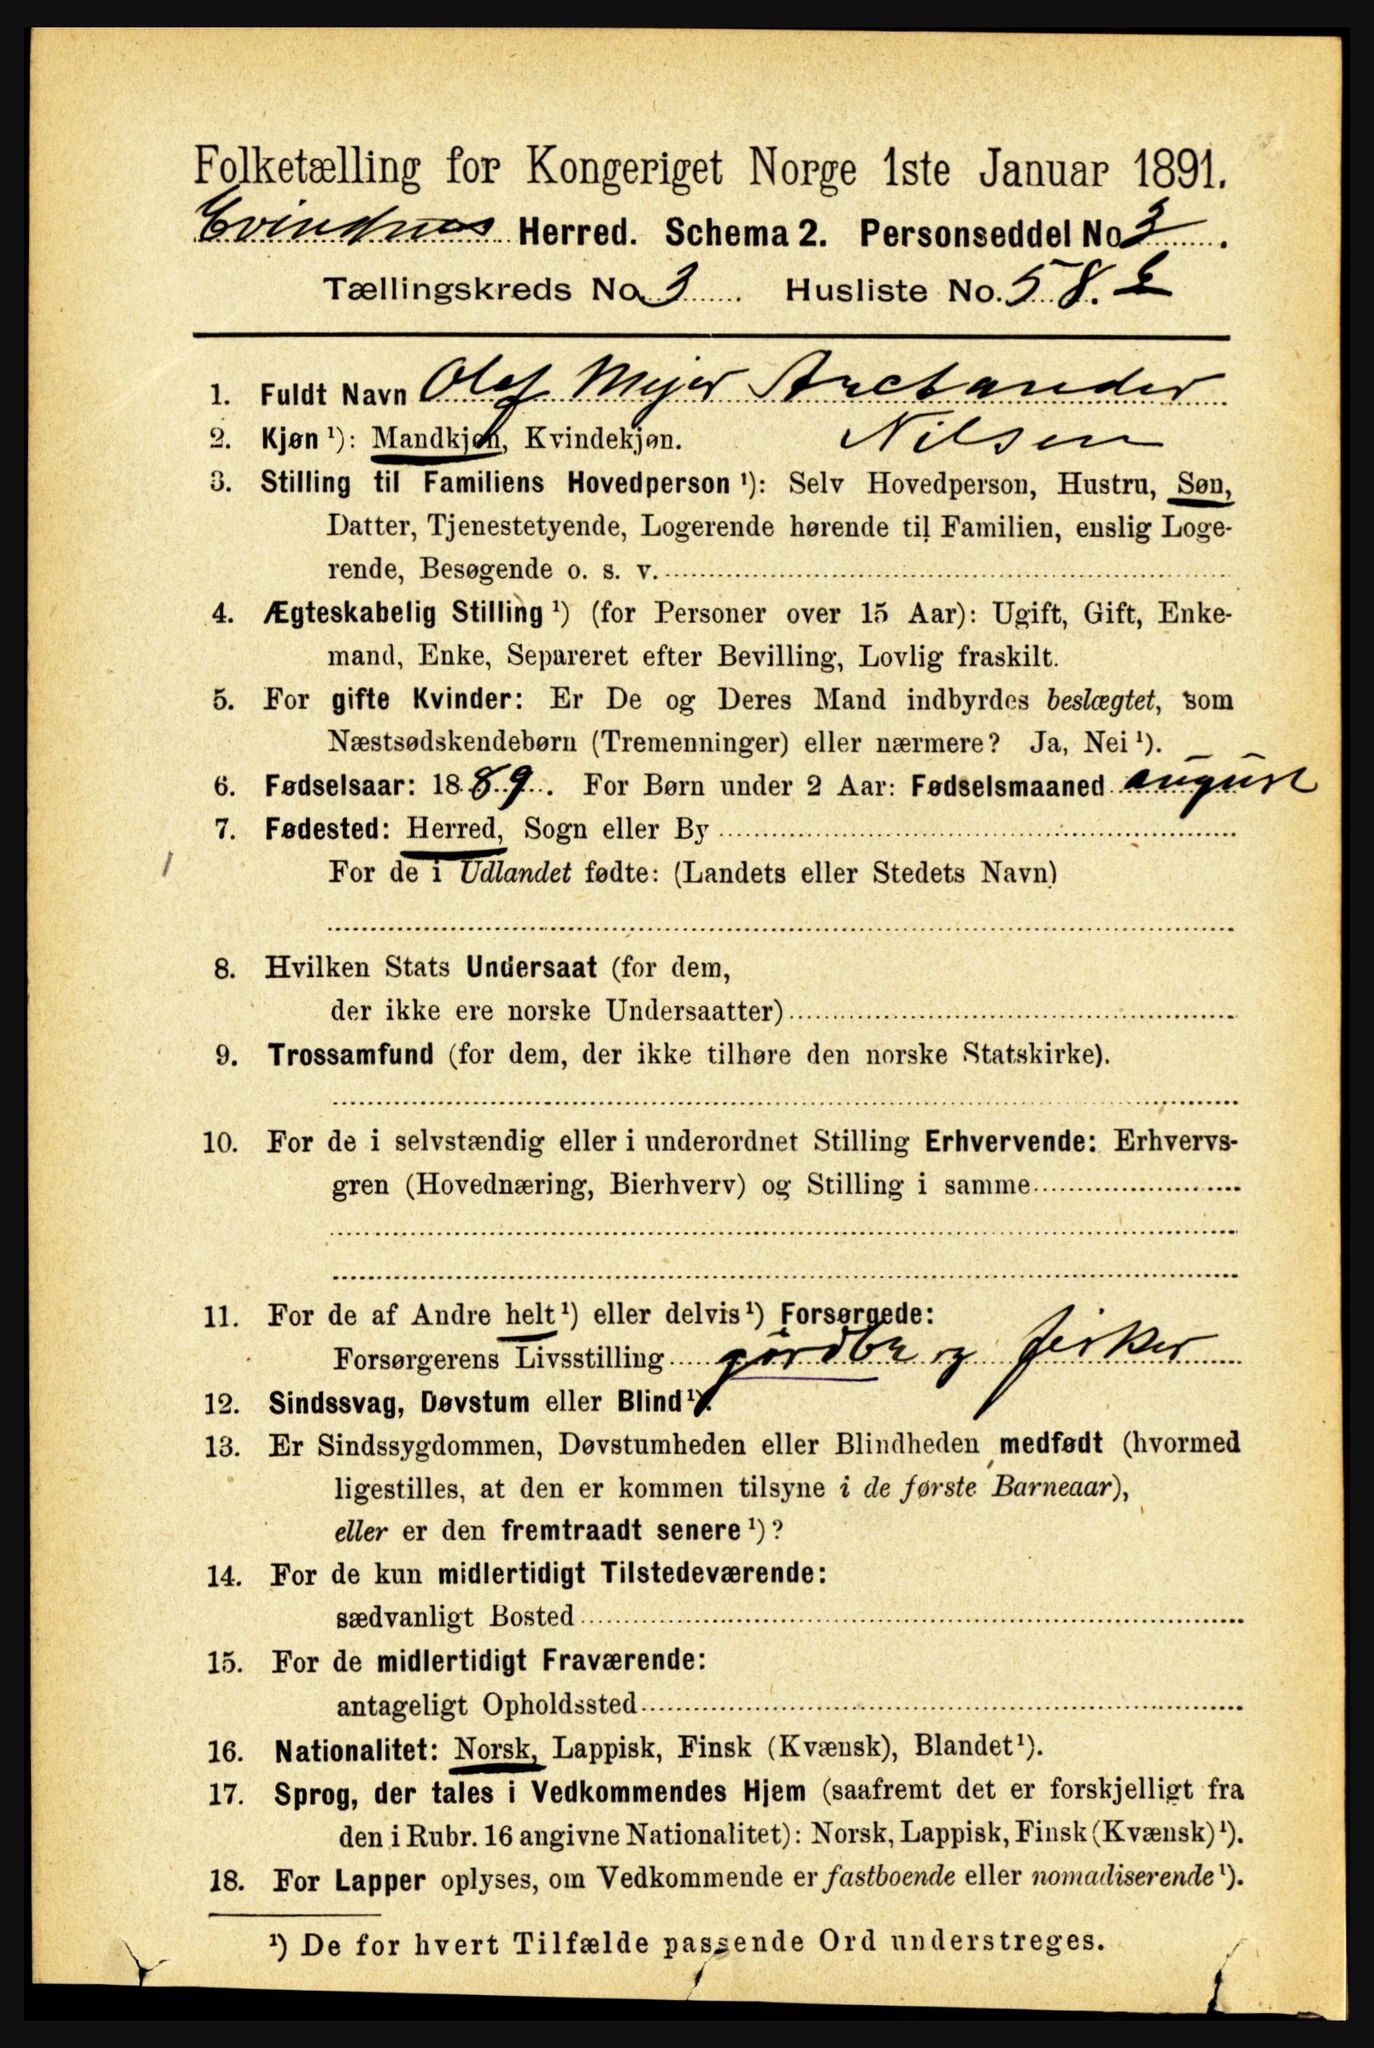 Folketælling for Kongeriget Norge 1ste Januar 1891.
Evindnes Herred. Schema 2. Personseddel No 3.
Tællingskreds No. 3 Husliste No. 58.
1. Fuldt Navn Olaf Mejer Anctander
2. Kjøn ¹): Mandkjøn, Kvindekjøn. Nilsen
3. Stilling til Familiens Hovedperson ¹): Selv Hovedperson, Hustru, Søn,
Datter, Tjenestetyende, Logerende hørende til Familien, enslig Loge-
rende, Besøgende o. s. v.
4. Ægteskabelig Stilling ¹) (for Personer over 15 Aar): Ugift, Gift, Enke-
mand, Enke, Separeret efter Bevilling, Lovlig fraskilt.
5. For gifte Kvinder: Er De og Deres Mand indbyrdes beslægtet, som
Næstsødskendebørn (Tremenninger) eller nærmere? Ja, Nei ¹).
6. Fødselsaar: 1889. For Børn under 2 Aar: Fødselsmaaned august
7. Fødested: Herred, Sogn eller By
For de i Udlandet fødte: (Landets eller Stedets Navn)
8. Hvilken Stats Undersaat (for dem,
der ikke ere norske Undersaatter)
9. Trossamfund (for dem, der ikke tilhøre den norske Statskirke).
10. For de i selvstændig eller i underordnet Stilling Erhvervende: Erhvervs-
gren (Hovednæring, Bierhverv) og Stilling i samme
11. For de af Andre helt ¹) eller delvis ¹) Forsørgede:
Forsørgerens Livsstilling gårdbr og fisker
12. Sindssvag, Døvstum eller Blind ¹).
13. Er Sindssygdommen, Døvstumheden eller Blindheden medfødt (hvormed
ligestilles, at den er kommen tilsyne i de første Barneaar),
eller er den fremtraadt senere ¹)?
14. For de kun midlertidigt Tilstedeværende:
sædvanligt Bosted
15. For de midlertidigt Fraværende:
antageligt Opholdssted
16. Nationalitet: Norsk, Lappisk, Finsk (Kvænsk), Blandet ¹).
17. Sprog, der tales i Vedkommendes Hjem (saafremt det er forskjelligt fra
den i Rubr. 16 angivne Nationalitet): Norsk, Lappisk, Finsk (Kvænsk) ¹).
18. For Lapper oplyses, om Vedkommende er fastboende eller nomadiserende ¹).
¹) De for hvert Tilfælde passende Ord understreges.